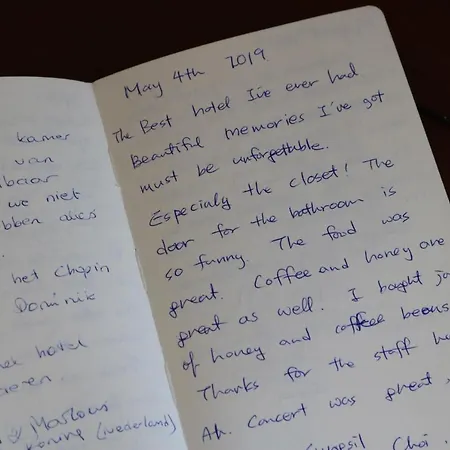 kamer
van
baar
we niet
bben alles
het Chopin
Dominik
hotel
& Marloui
(nederland)
May 4th 2019
The Best hotel I've ever had
Beautiful memories I've got
must be unforgettable.
Especialy the closet! The
door for the bathroom is
so funny. The food was
great. Coffee and honey are
great as well. I bought ja
of honey and coffee beans
Thanks for the staff he
Ah. Concert was great
Choi